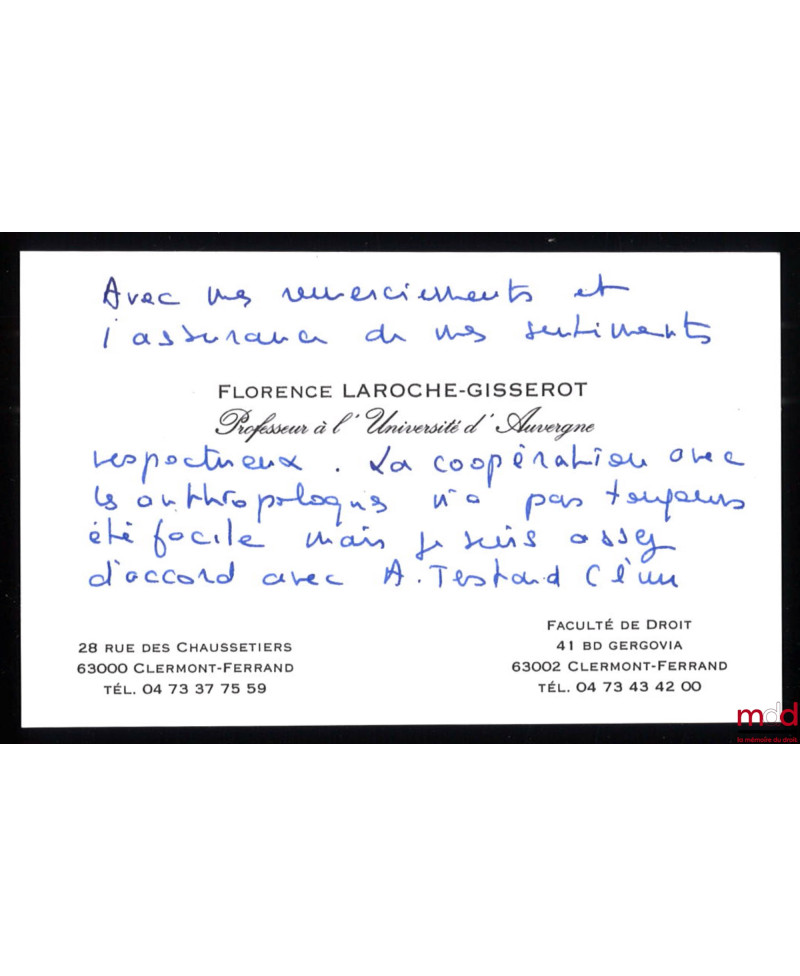 Avec mes remerciements et
l'assurance de mes sentiments
FLORENCE LAROCHE-GISSEROT
Professeur à l'Université d'Auvergne
respectueux. La coopération avec
les anthropologues n'a pas toujours
été facile mais je suis assez
d'accord avec A. Testard (l'un
28 RUE DES CHAUSSETIERS
63000 CLERMONT-FERRAND
TÉL. 04 73 37 75 59
FACULTÉ DE DROIT
41 BD GERGOVIA
63002 CLERMONT-FERRAND
TÉL. 04 73 43 42 00
mdd
la mémoire du droit